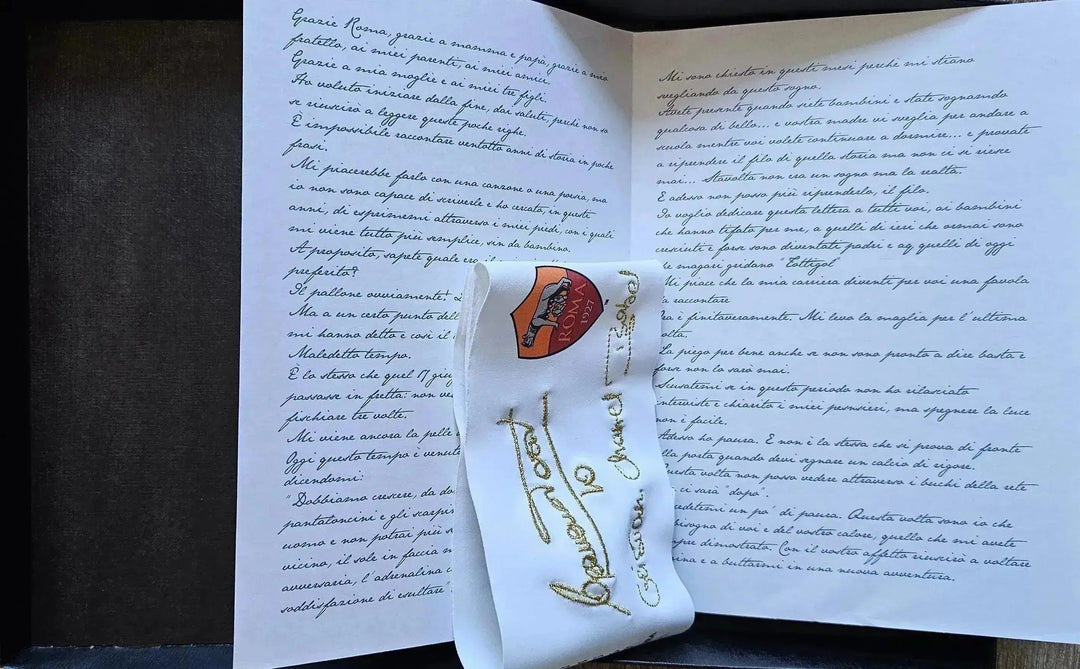 Grazie Roma, grazie a mamma e papà, grazie a mio
fratello, ai miei parenti, ai miei amici.
Grazie a mia moglie e ai miei tre figli.
Ho voluto iniziare dalla fine, dai saluti, perché non so
se riuscirò a leggere queste poche righe.
È impossibile raccontare ventotto anni di storia in poche
frasi.
Mi piacerebbe farlo con una canzone o una poesia, ma
io non sono capace di scriverle e ho cercato, in questi
anni, di esprimermi attraverso i miei piedi, con i quali
mi viene tutto più semplice, sin da bambino.
A proposito, sapete quale era il
preferito?
Il pallone ovviamente!
Ma a un certo punto della
mi hanno detto e così il
Maledetto tempo.
È lo stesso che quel 17 giug
passasse in fretta: non ve
fischiare tre volte.
Mi viene ancora la pelle
Oggi questo tempo è venuto
dicendomi:
"Dobbiamo crescere, da do
pantaloncini e gli scarpin
uomo e non potrai più s
vicino, il sole in faccia m
avversaria, l'adrenalina
soddisfazione di esultare"
Mi sono chiesto in questi mesi perché mi stiano
svegliando da questo sogno.
Avete presente quando siete bambini e state sognando
qualcosa di bello... e vostra madre vi sveglia per andare a
scuola mentre voi volete continuare a dormire... e provate
a riprendere il filo di quella storia ma non ci si riesce
mai... Stavolta non era un sogno ma la realtà.
E adesso non posso più riprenderlo, il filo.
Io voglio dedicare questa lettera a tutti voi, ai bambini
che hanno tifato per me, a quelli di ieri che ormai sono
cresciuti e forse sono diventati padri e a quelli di oggi
che magari gridano "Tottigol"
Mi piace che la mia carriera diventi per voi una favola
da raccontare
Ora è finita veramente. Mi levo la maglia per l'ultima
volta.
La piego per bene anche se non sono pronto a dire basta e
forse non lo sarò mai.
Scusatemi se in questo periodo non ho rilasciato
interviste e chiarito i miei pensieri, ma spegnere la luce
non è facile.
Adesso ho paura. E non è la stessa che si prova di fronte
alla porta quando devi segnare un calcio di rigore.
Questa volta non posso vedere attraverso i buchi della rete
ci sarà "dopo".
cedetemi un po' di paura. Questa volta sono io che
bisogno di voi e del vostro calore, quello che mi avete
mpre dimostrato. Con il vostro affetto riuscirò a voltare
gina e a buttarmi in una nuova avventura.
ROMA
1927
10
Chanel
Isabel